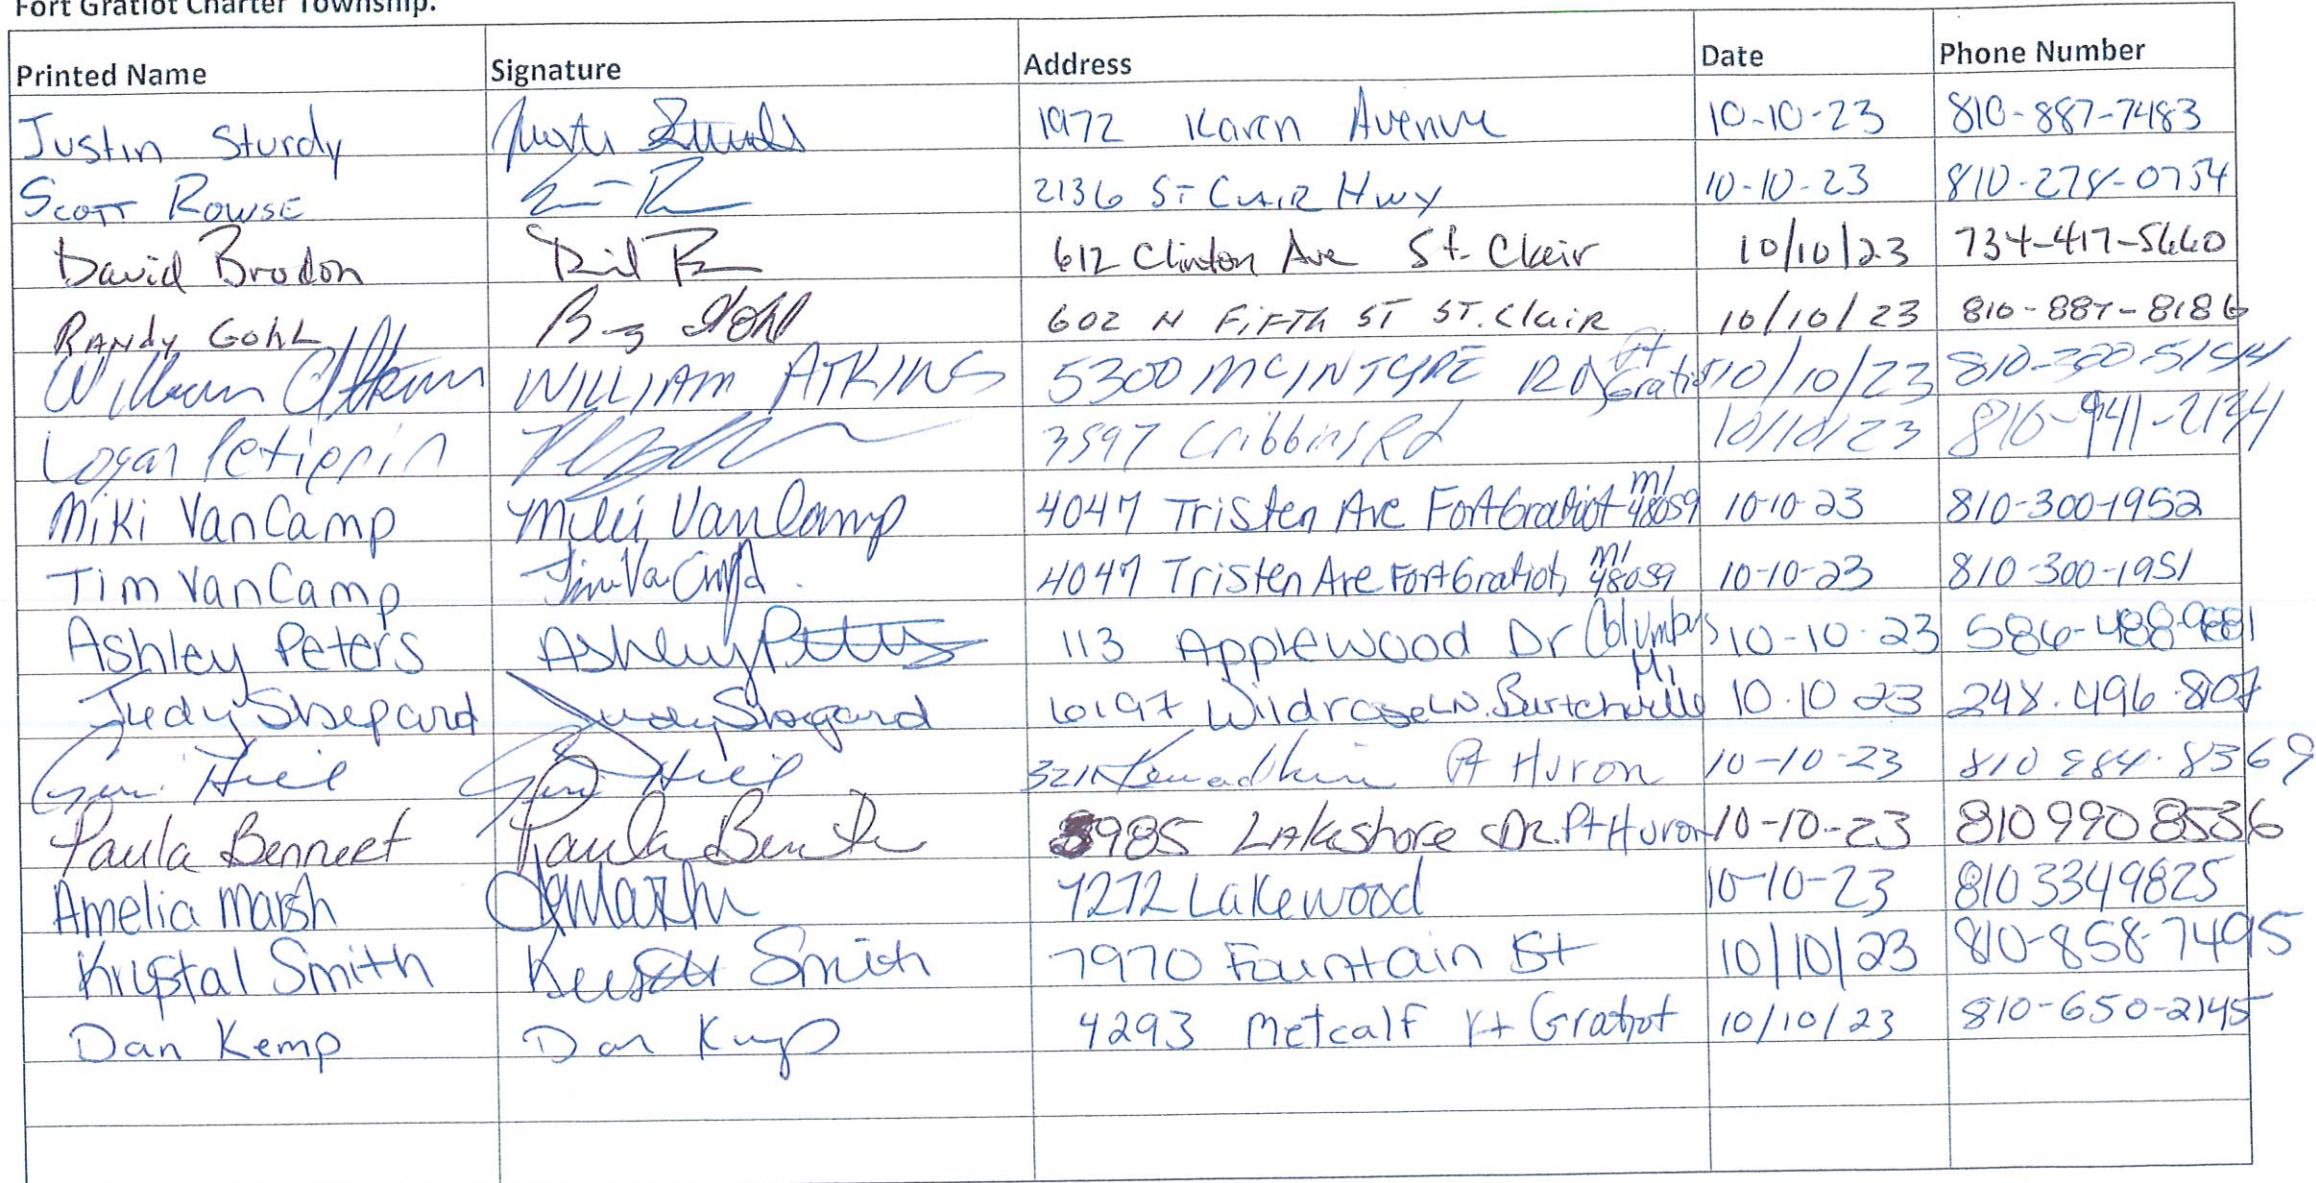 Fort Gratiot Charter Township.
Printed Name Signature Address Date Phone Number
Justin Sturdy 1972 Karen Avenue 10-10-23 810-887-7483
Scott Rowse 2136 St Clair Hwy 10-10-23 810-278-0754
David Brodon 612 Clinton Ave St. Clair 10/10/23 734-417-5660
RANdy GohL 602 N FiFTh ST ST. ClaiR 10/10/23 810-887-8186
William Atkins WILLIAM ATKINS 5300 MCINTYRE RD Ft Gratiot 10/10/23 810-300-5194
Logan Petiprin 3597 Cribbins Rd 10/10/23 810-941-2134
Miki VanCamp Miki VanCamp 4047 Tristen Ave Fort Gratiot MI 48059 10-10-23 810-300-1952
Tim VanCamp Tim VanCamp 4047 Tristen Ave Fort Gratiot, MI 48059 10-10-23 810-300-1951
Ashley Peters Ashley Peters 113 Applewood Dr Columbus MI 10-10-23 586-488-9881
Judy Shepard Judy Shepard 6197 Wildrose LN. Burtchville 10.10 23 248.496.8107
Hill Hill Pt Huron 10-10-23 810 984.8369
Paula Bennett Paula 8985 LAkeshore DR. Pt Huron 10-10-23 810 990 8536
Amelia Marsh 7272 Lakewood 10-10-23 8103349825
Krystal Smith Smith 7970 Fountain St 10/10/23 810-858-7495
Dan Kemp Dan Kemp 4293 Metcalf Ft Gratiot 10/10/23 810-650-2145